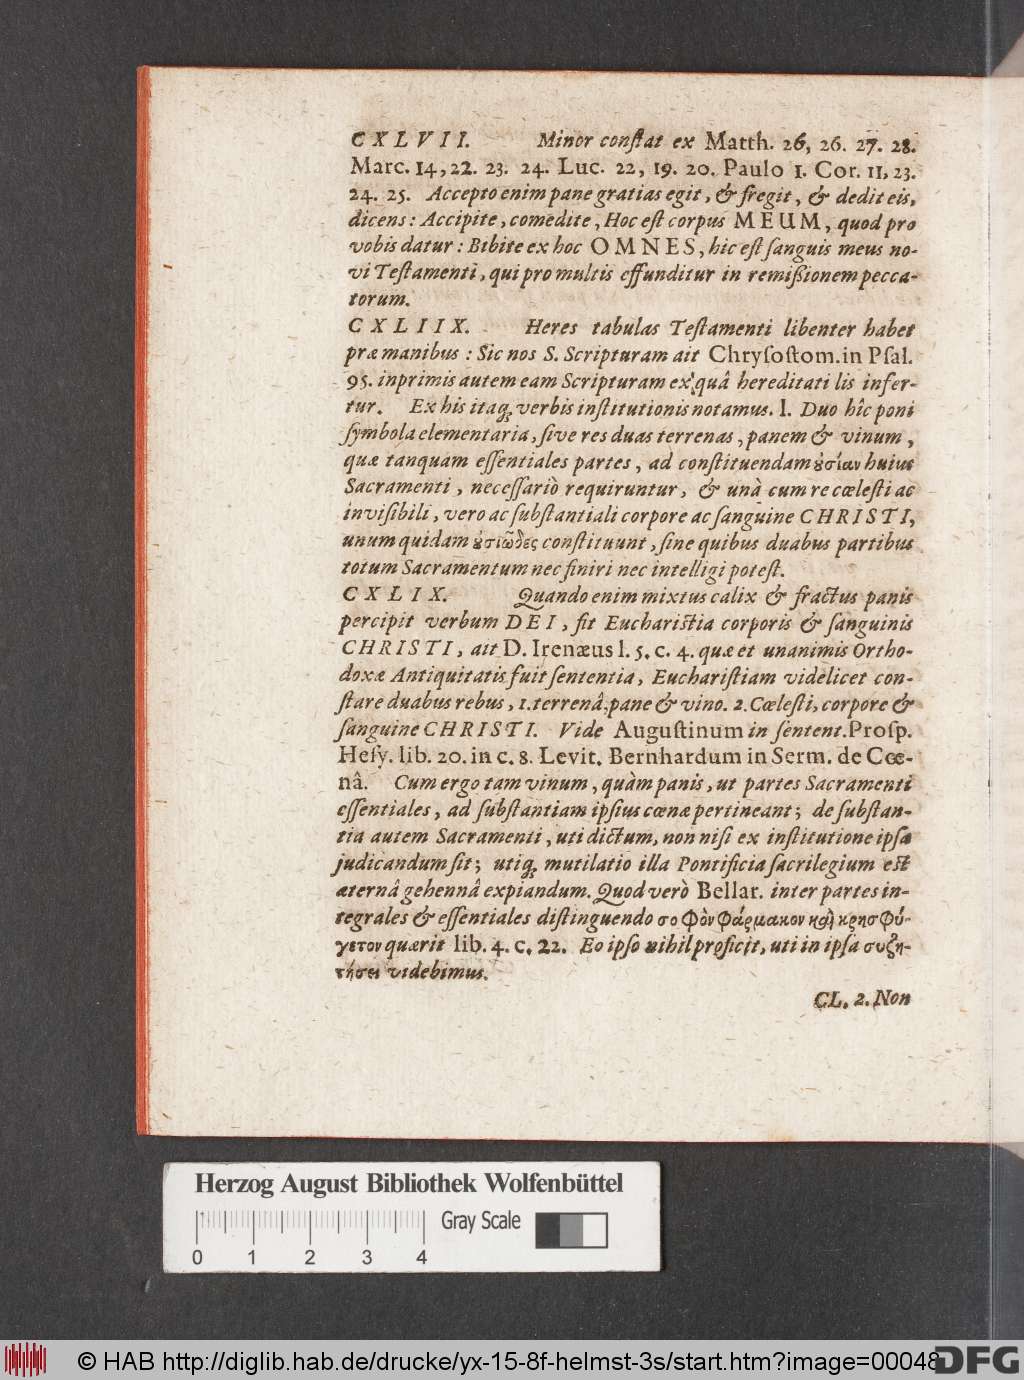 CXLVII. Minor conſtat ex Matth. 26, 26. 27. 28.
Marc. 14, 22. 23. 24. Luc. 22, 19. 20. Paulo 1. Cor. 11, 23.
24. 25. Accepto enim pane gratias egit, & fregit, & dedit eis,
dicens: Accipite, comedite, Hoc eſt corpus MEUM, quod pro
vobis datur: Bibite ex hoc OMNES, hic eſt ſanguis meus no-
vi Teſtamenti, qui pro multis effunditur in remiſſionem pecca-
torum.
CXLIIX. Heres tabulas Teſtamenti libenter habet
præ manibus: Sic nos S. Scripturam ait Chryſoſtom. in Pſal.
95. inprimis autem eam Scripturam ex quâ hereditati lis infer-
tur. Ex his itaq; verbis inſtitutionis notamus. 1. Duo hîc poni
ſymbola elementaria, ſive res duas terrenas, panem & vinum,
quæ tanquam eſſentiales partes, ad conſtituendam ȣσίαν huius
Sacramenti, neceſſariò requiruntur, & unà cum re cœleſti ac
inviſibili, vero ac ſubſtantiali corpore ac ſanguine CHRISTI,
unum quidam ȣσιῶδες conſtituunt, ſine quibus duabus partibus
totum Sacramentum nec finiri nec intelligi poteſt.
CXLIX. Quando enim mixtus calix & fractus panis
percipit verbum DEI, fit Euchariſtia corporis & ſanguinis
CHRISTI, ait D. Irenæus l. 5. c. 4. quæ et unanimis Ortho-
doxæ Antiquitatis fuit ſententia, Euchariſtiam videlicet con-
ſtare duabus rebus, 1. terrenâ, pane & vino. 2. Cœleſti, corpore &
ſanguine CHRISTI. Vide Auguſtinum in ſentent. Proſp.
Heſy. lib. 20. in c. 8. Levit. Bernhardum in Serm. de Cœ-
nâ. Cum ergo tam vinum, quàm panis, ut partes Sacramenti
eſſentiales, ad ſubſtantiam ipſius cœnæ pertineant; de ſubſtan-
tia autem Sacramenti, uti dictum, non niſi ex inſtitutione ipſa
judicandum ſit; utiq; mutilatio illa Pontificia ſacrilegium eſt
æternâ gehennâ expiandum. Quod verò Bellar. inter partes in-
tegrales & eſſentiales diſtinguendo σοφὸν φάρμακον καὶ κρησφύ-
γετον quærit lib. 4. c. 22. Eo ipſo nihil proficit, uti in ipſa συζη-
τήσει videbimus.
CL. 2. Non
Herzog August Bibliothek Wolfenbüttel
Gray Scale
0 1 2 3 4
© HAB http://diglib.hab.de/drucke/yx-15-8f-helmst-3s/start.htm?image=00048
DFG